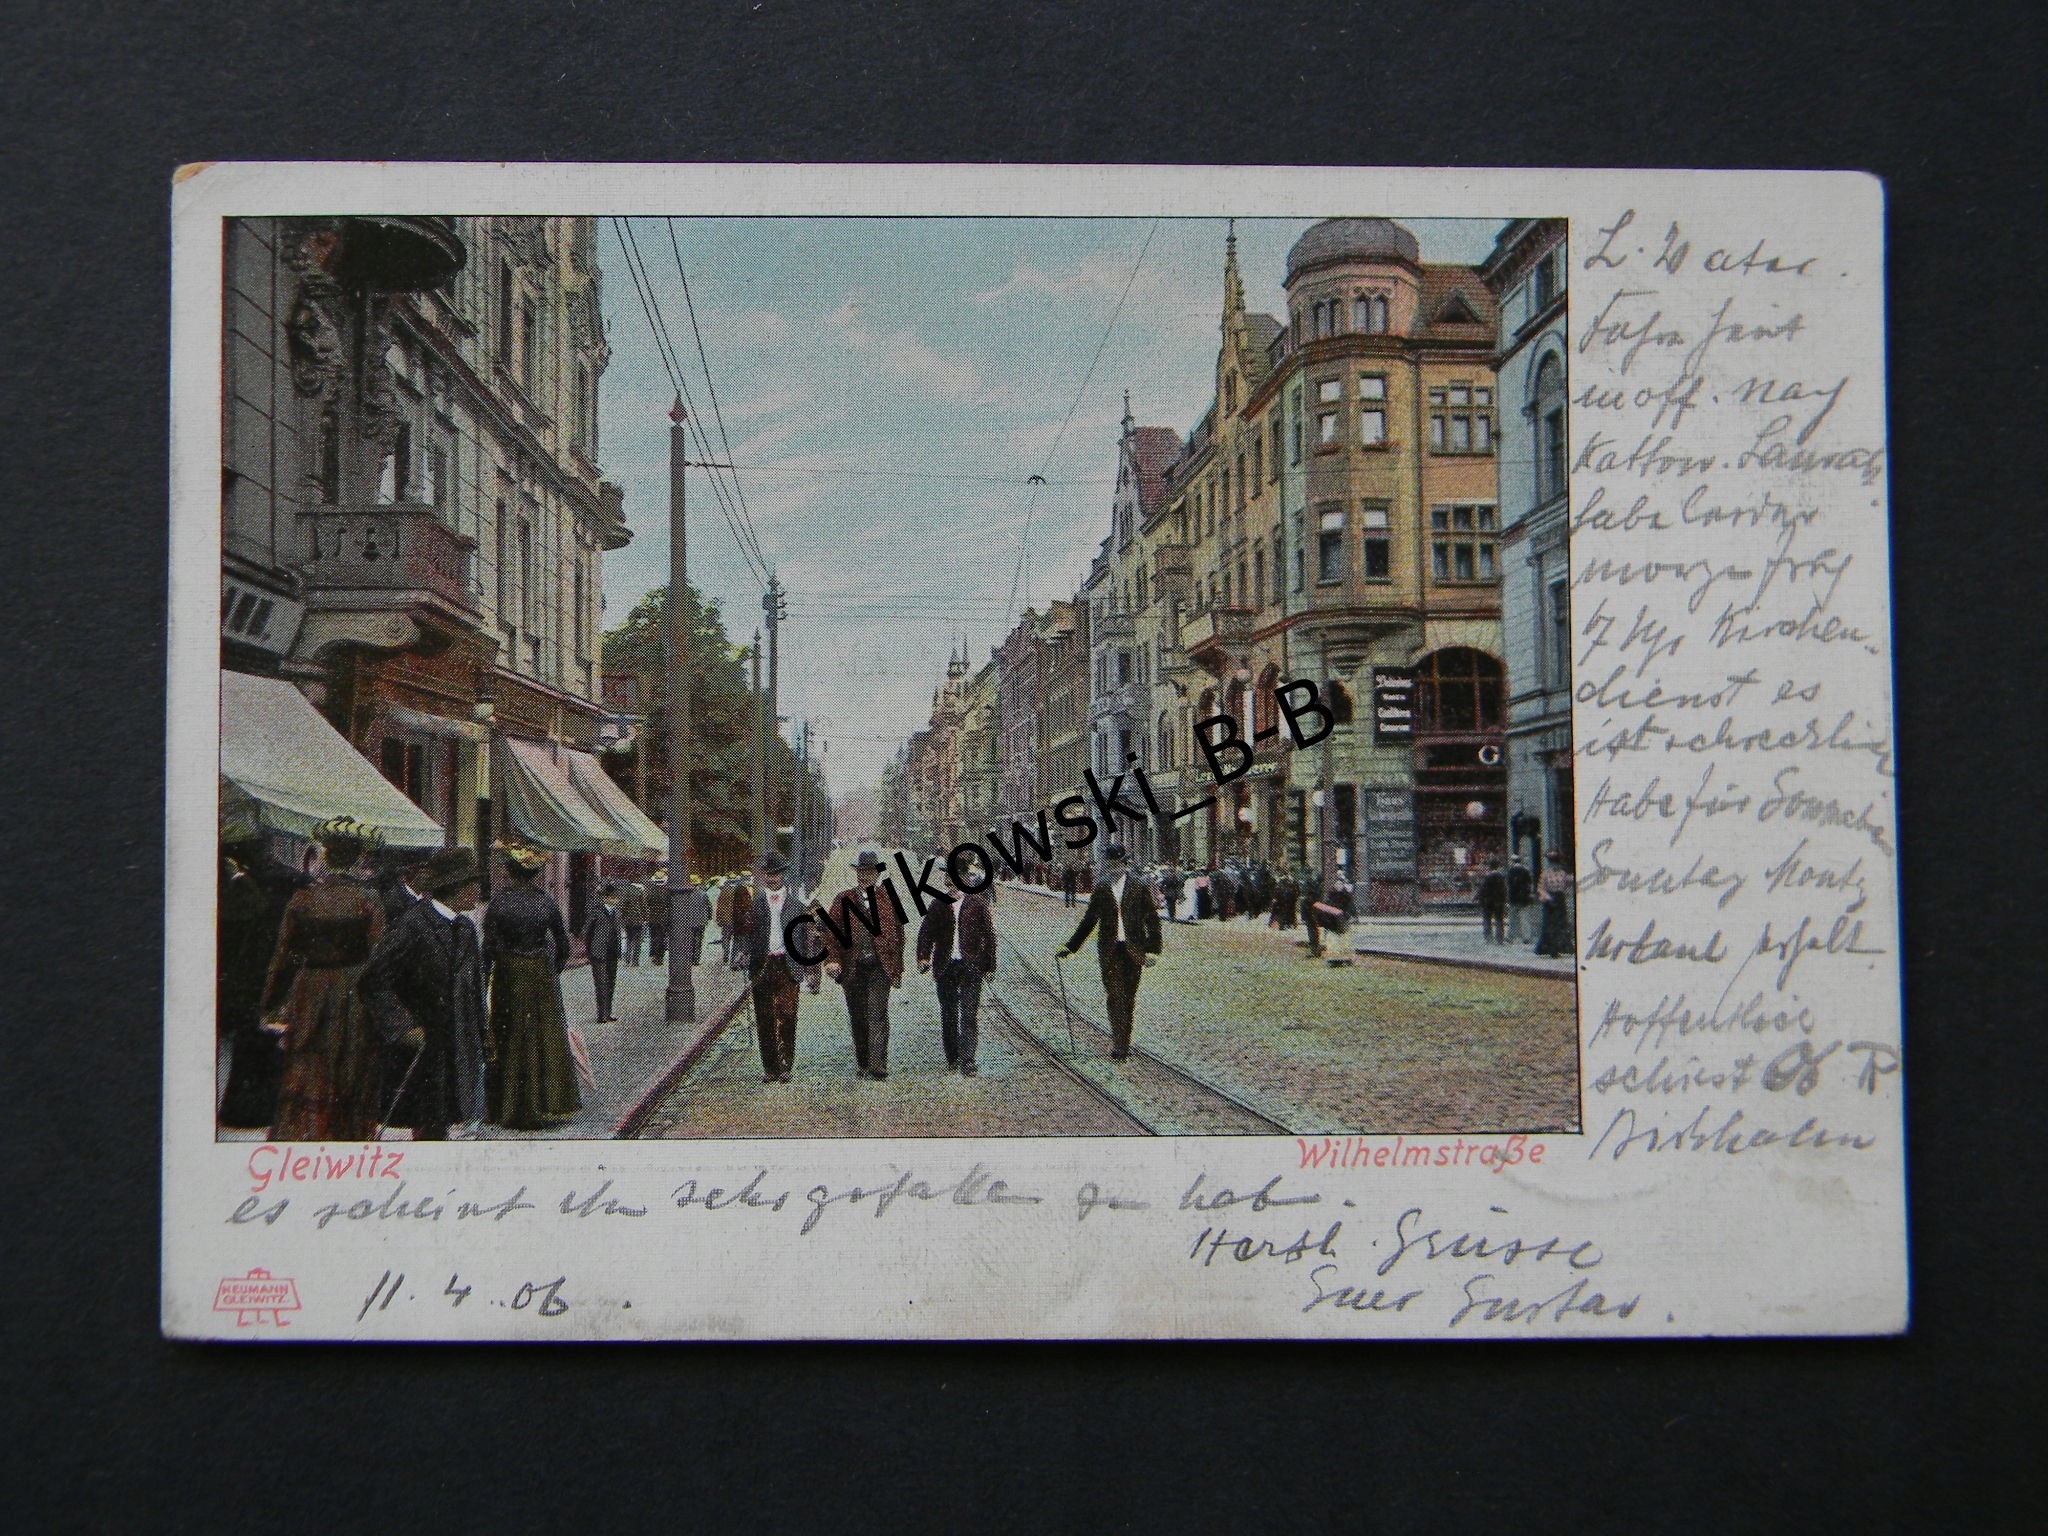 L. Vater.
Fahre heut
in off. nach
Kattow. Laurah.
habe leider
morgen früh
7 Uhr Kirchen-
dienst es
ist schrecklich
Habe für Sonnabend
Sonntag Montag
Urlaub
Hoffentlich
schiest
es scheint ihm sehr gefallen zu haben.
Herzl. Grüsse
Euer Gustav.
11. 4. 06.
Gleiwitz
Wilhelmstraße
NEUMANN
GLEIWITZ
G
cwikowski_B-B